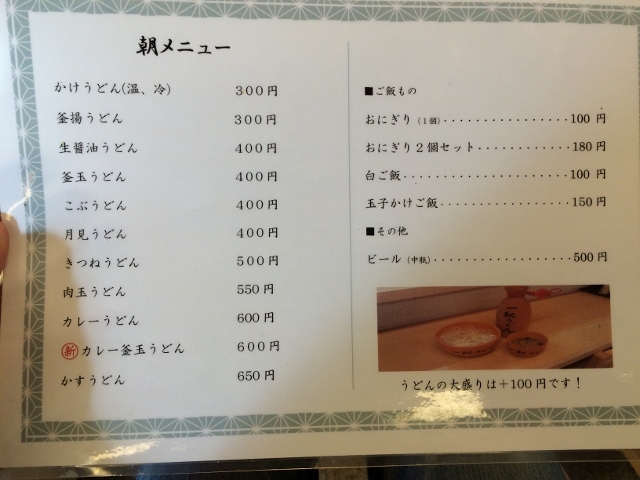 朝メニュー
かけうどん(温、冷) 300円
釜揚うどん 300円
生醤油うどん 400円
釜玉うどん 400円
こぶうどん 400円
月見うどん 400円
きつねうどん 500円
肉玉うどん 550円
カレーうどん 600円
新 カレー釜玉うどん 600円
かすうどん 650円
■ご飯もの
おにぎり（1個）.................100円
おにぎり2個セット............180円
白ご飯.......................100円
玉子かけご飯..................150円
■その他
ビール（中瓶）..................500円
うどんの大盛りは+100円です！